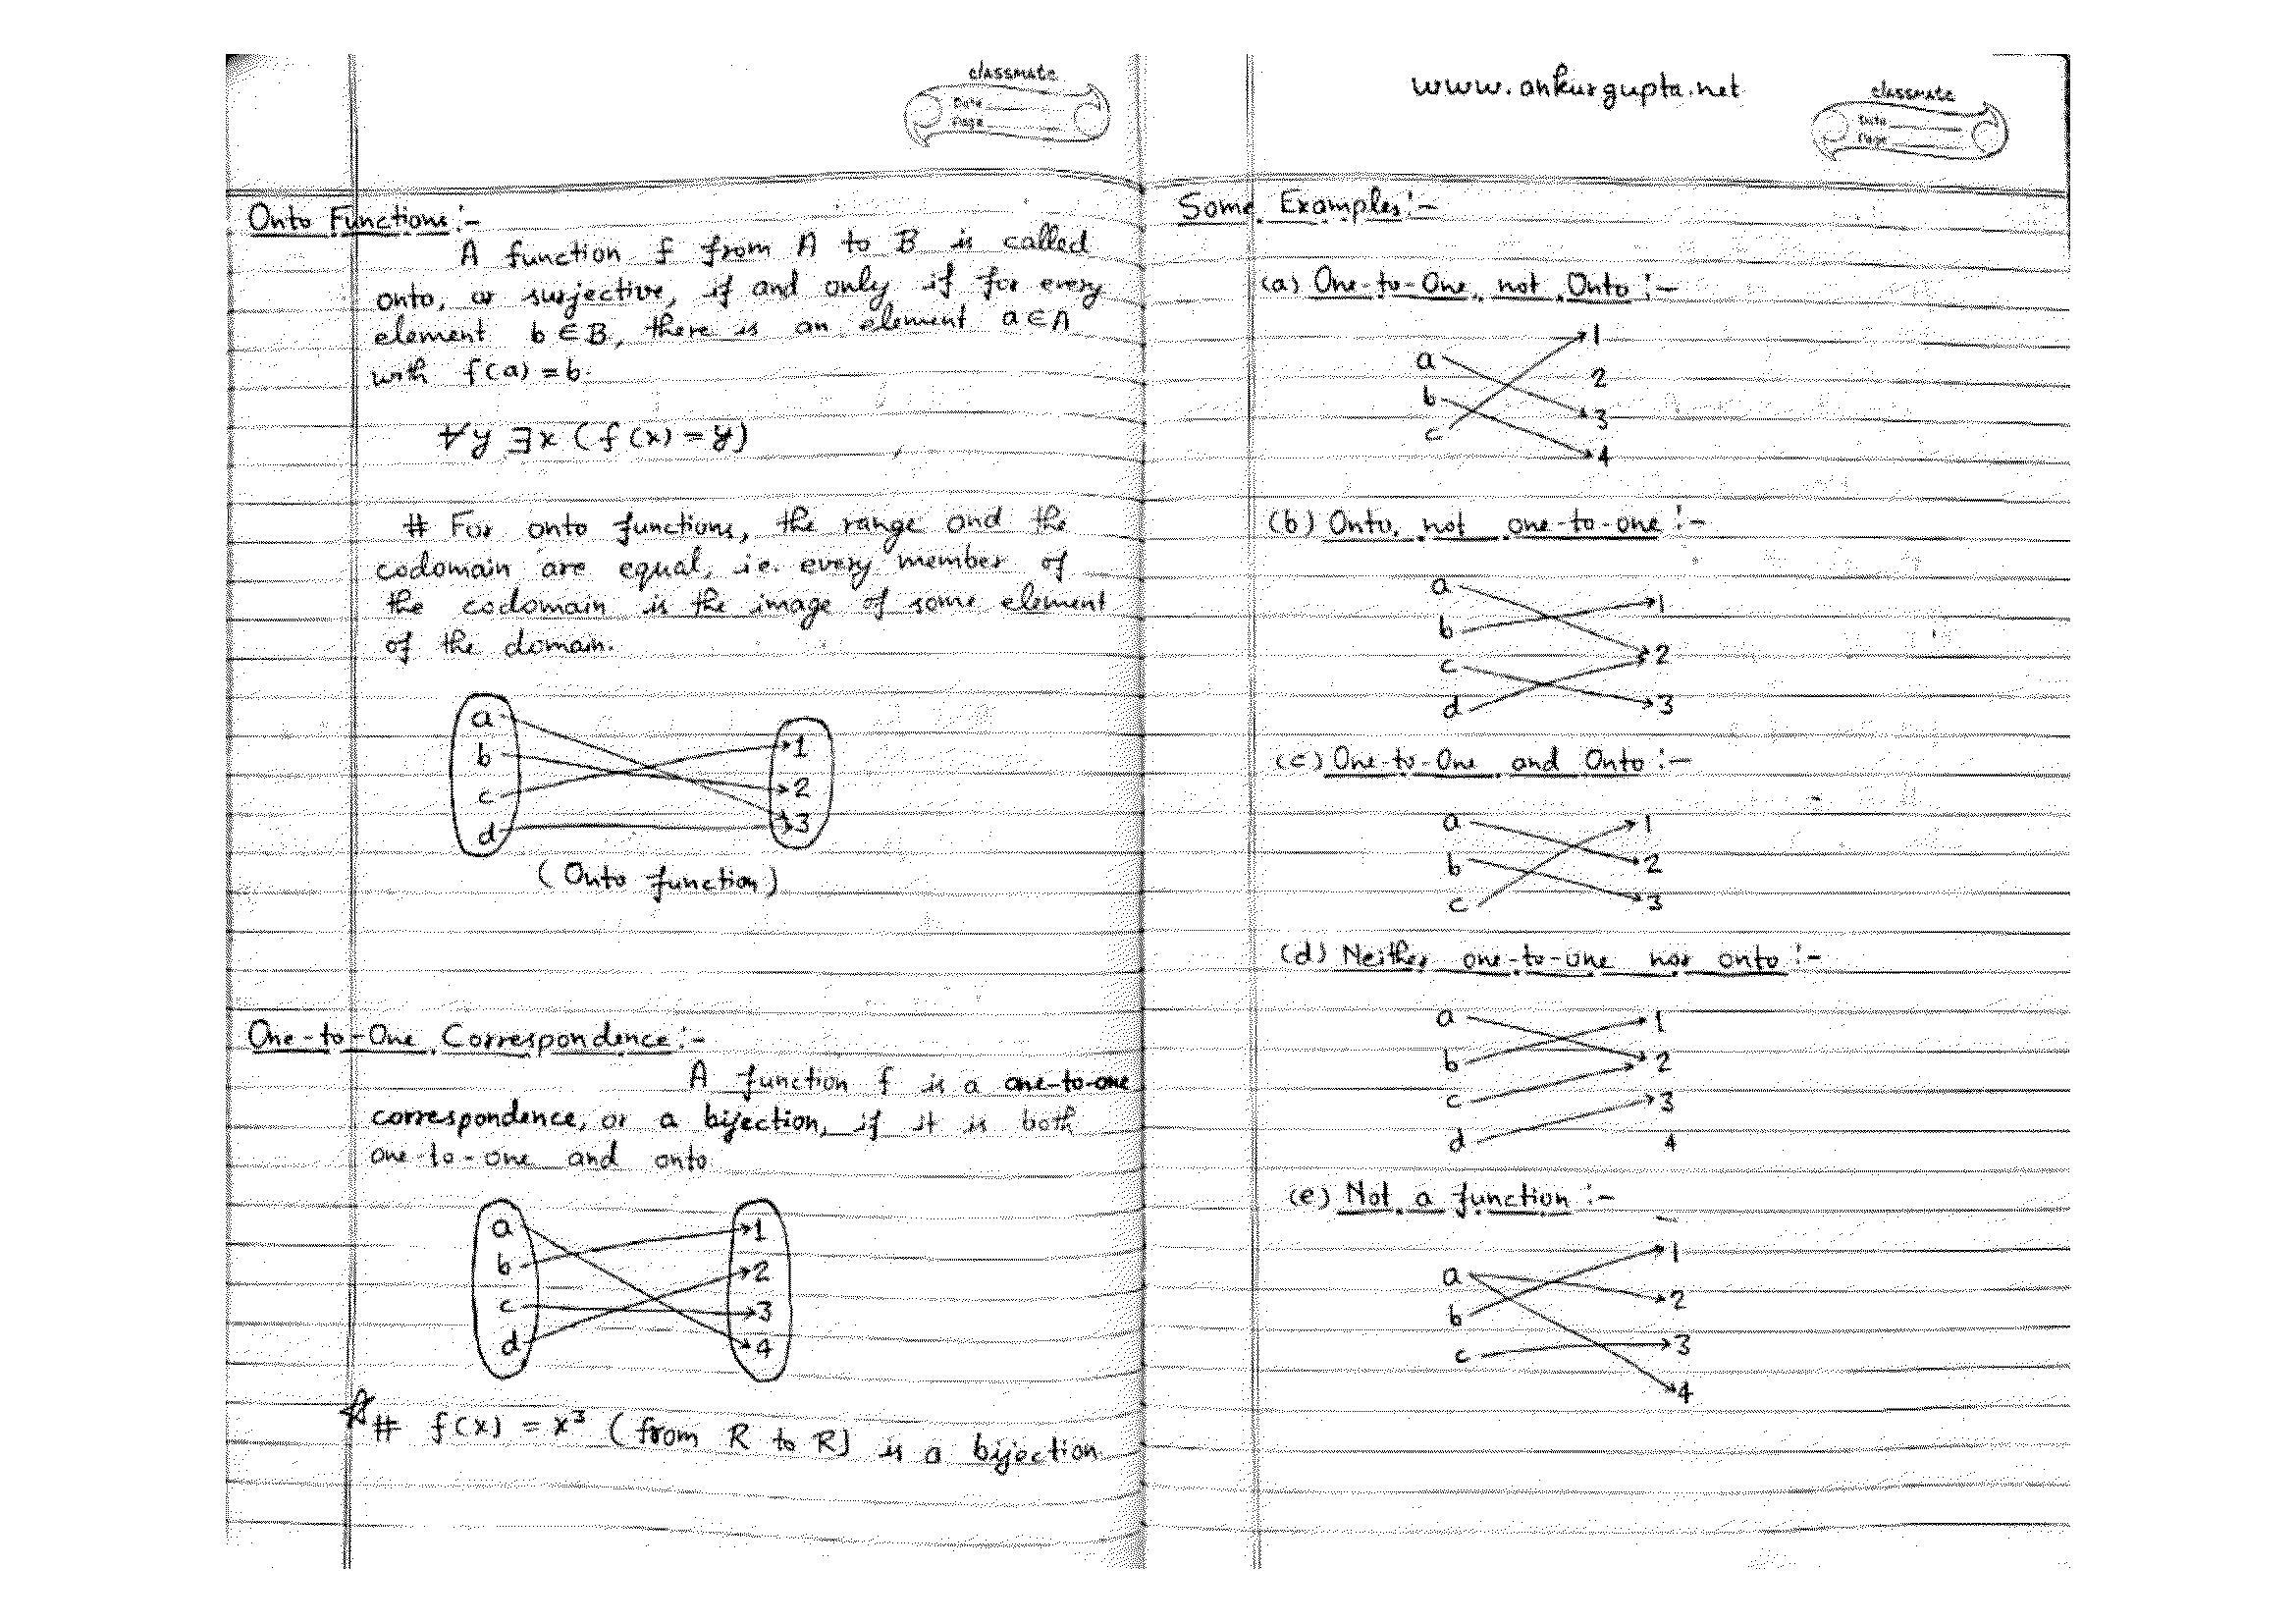 classmate
Date
Page
Onto Functions :-
A function f from A to B is called
onto, or surjective, if and only if for every
element b ∈ B, there is an element a ∈ A
with f(a) = b.
∀y ∃x ( f(x) = y)
# For onto functions, the range and the
codomain are equal, i.e. every member of
the codomain is the image of some element
of the domain.
a
b
c
d
1
2
3
( Onto function )
One-to-One Correspondence :-
A function f is a one-to-one
correspondence, or a bijection, if it is both
one-to-one and onto
a
b
c
d
1
2
3
4
# f(x) = x³ ( from R to R) is a bijection
www.ankurgupta.net
classmate
Date
Page
Some Examples :-
(a) One-to-One, not Onto :-
a
b
c
1
2
3
4
(b) Onto, not one-to-one :-
a
b
c
d
1
2
3
(c) One-to-One and Onto :-
a
b
c
1
2
3
(d) Neither one-to-one nor onto :-
a
b
c
d
1
2
3
4
(e) Not a function :-
a
b
c
1
2
3
4